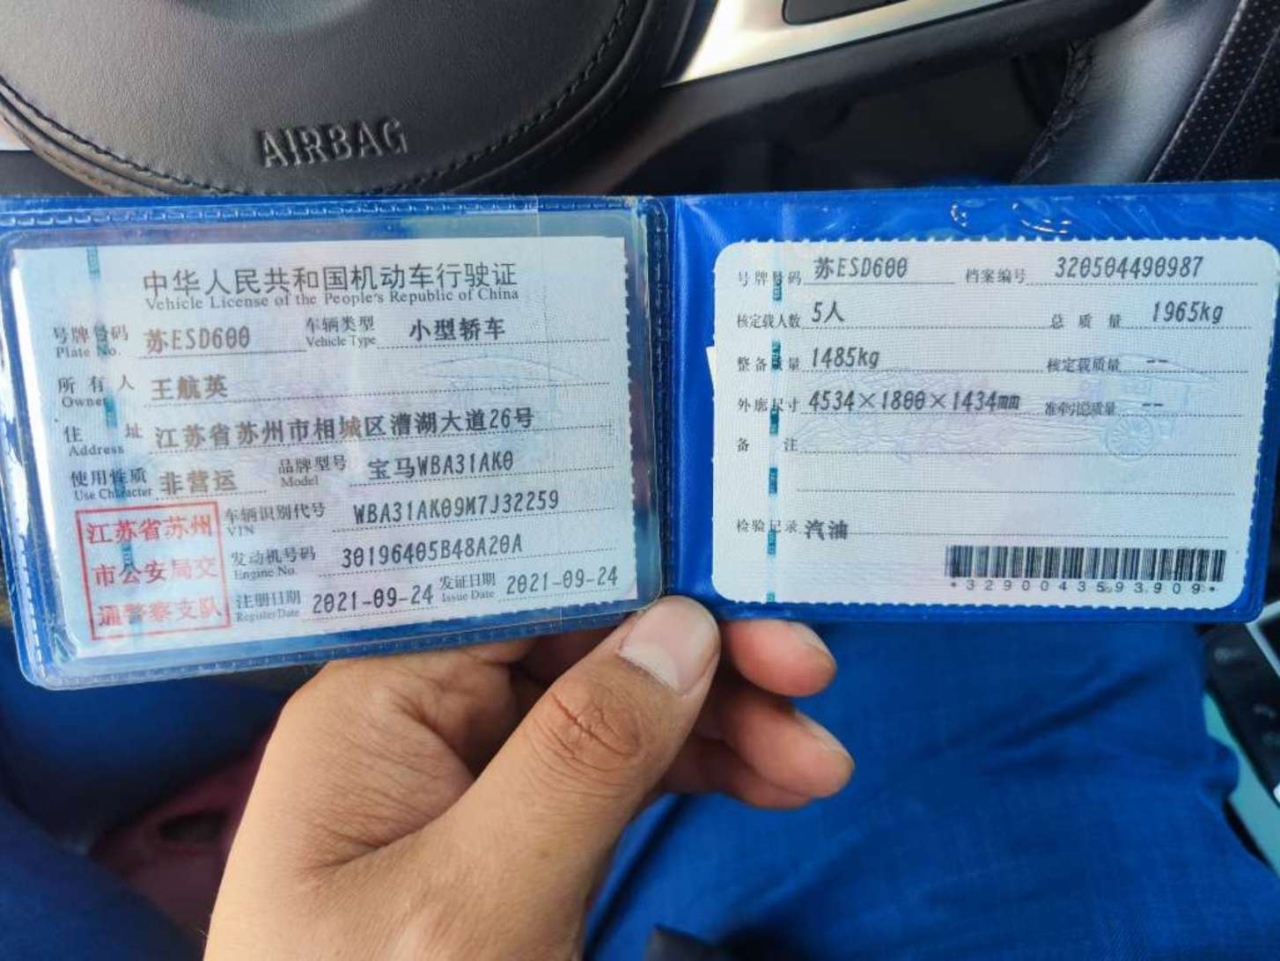 AIRBAG
中华人民共和国机动车行驶证
Vehicle License of the People's Republic of China
号牌号码 苏ESD600 车辆类型 小型轿车
Plate No. Vehicle Type
所有人 王航英
Owner
住址 江苏省苏州市相城区漕湖大道26号
Address
使用性质 非营运 品牌型号 宝马WBA31AK0
Use Character Model
江苏省苏州
市公安局交
通警察支队
车辆识别代号 WBA31AK09M7J32259
VIN
发动机号码 30196405B48A20A
Engine No.
注册日期 2021-09-24 发证日期 2021-09-24
Register Date Issue Date
号牌号码 苏ESD600 档案编号 320504490987
核定载人数 5人 总质量 1965kg
整备质量 1485kg 核定载质量 --
外廓尺寸 4534×1800×1434mm 准牵引总质量 --
备注
检验记录 汽油
*3290043593909*